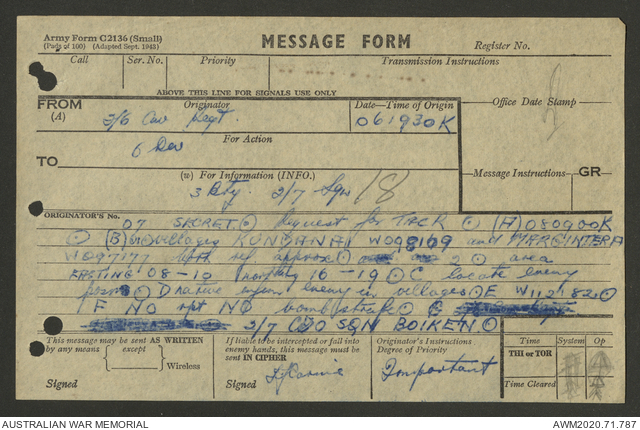 Army Form C2136 (Small)
(Pads of 100) (Adapted Sept. 1943)
MESSAGE FORM
Register No.
Call Ser. No. Priority Transmission Instructions
ABOVE THIS LINE FOR SIGNALS USE ONLY
FROM Originator Date—Time of Origin Office Date Stamp
(A) 2/6 Cav Regt. 061930K
For Action
TO 6 Div
(W) For Information (INFO.) Message Instructions GR
3 Bty. 2/7 Sqn 18
ORIGINATOR'S No.
07 SECRET ⊙ Request for TACR ⊙ (A) 080900K
⊙ (B) villages KUNBANAI W098169 and
W097177 both ref approx ⊙ 2 ⊙ area
EASTING 08-10 northing 16-19 ⊙ C locate enemy
⊙ D native enemy in villages ⊙ E W112182 ⊙
F NO rpt NO bomb strafe ⊙ G
2/7 CDO SQN BOIKEN ⊙
This message may be sent AS WRITTEN
by any means except Wireless
Signed
If liable to be intercepted or fall into
enemy hands, this message must be
sent IN CIPHER
Signed
Originator's Instructions
Degree of Priority
Important
Time System Op
THI or TOR
Time Cleared
AUSTRALIAN WAR MEMORIAL AWM2020.71.787